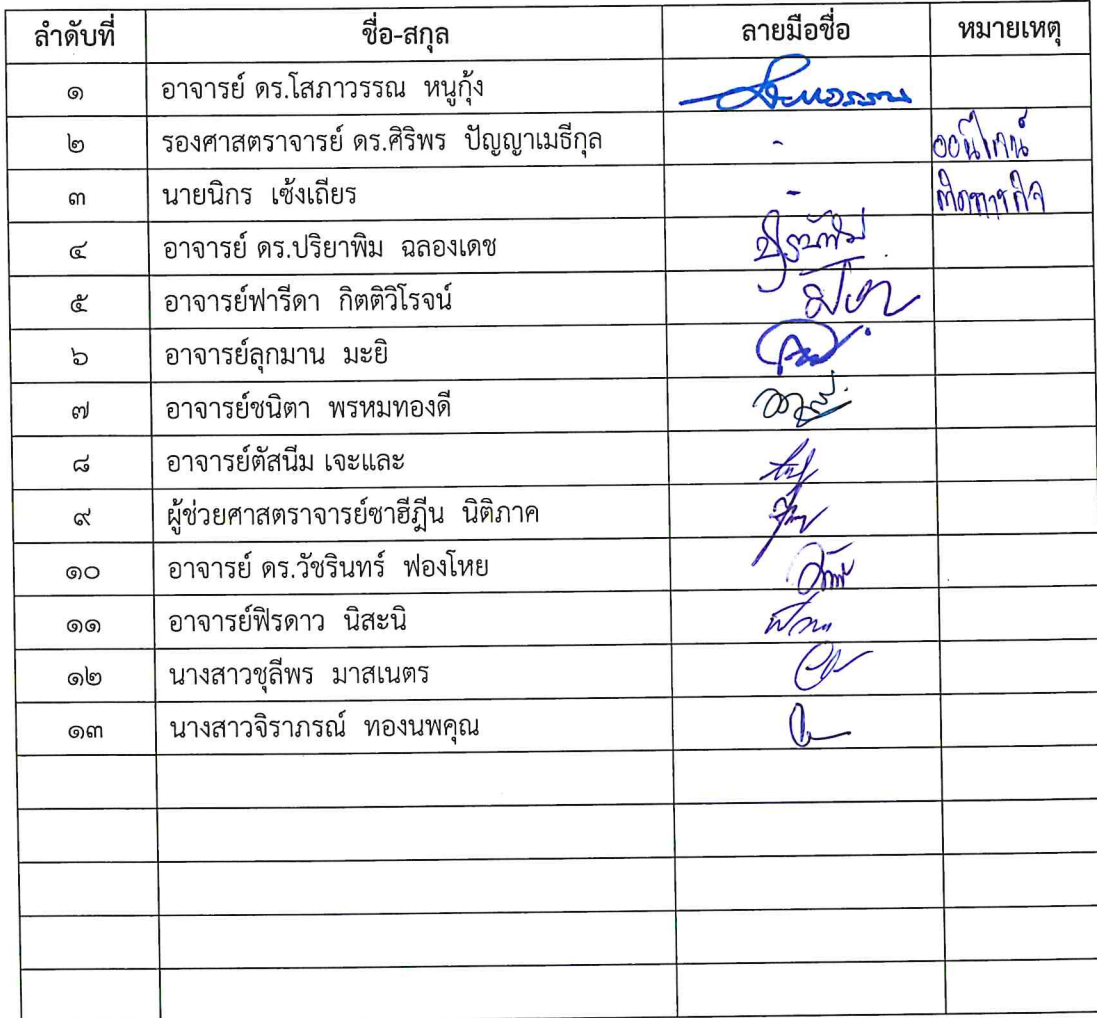 ลำดับที่ ชื่อ-สกุล ลายมือชื่อ หมายเหตุ
๑ อาจารย์ ดร.โสภาวรรณ หนูกุ้ง
๒ รองศาสตราจารย์ ดร.ศิริพร ปัญญาเมธีกุล - ออนไลน์
๓ นายนิกร เซ้งเถียร - ติดภารกิจ
๔ อาจารย์ ดร.ปริยาพิม ฉลองเดช
๕ อาจารย์ฟารีดา กิตติวิโรจน์
๖ อาจารย์ลุกมาน มะยิ
๗ อาจารย์ชนิตา พรหมทองดี
๘ อาจารย์ตัสนีม เจะและ
๙ ผู้ช่วยศาสตราจารย์ซาฮีฎีน นิติภาค
๑๐ อาจารย์ ดร.วัชรินทร์ ฟองโหย
๑๑ อาจารย์ฟิรดาว นิสะนิ
๑๒ นางสาวชุลีพร มาสเนตร
๑๓ นางสาวจิราภรณ์ ทองนพคุณ